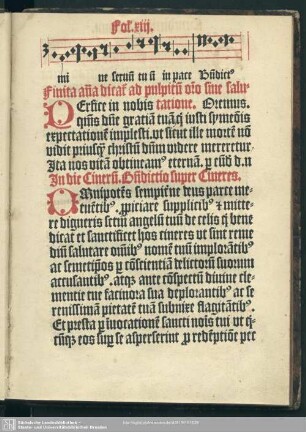 Fol. xiij.
mi ne seruū tuū in pace Bn̄dic⁹
Finita an̄a dicat᷑ ad pulpitū or̄o sine salu-
PErfice in nobis tatione. Oremus.
qs̄ dn̄e gratiā tuā q̄ iusti symeōis
expectationē implesti. vt sicut ille mortē nō
vidit priusq̄ christū dn̄m videre mereretur.
Ita nos vitā obtineam⁹ eternā. p eūd̄ .n
In die Cinerū. Bn̄dictio super Cineres.
OMnipotēs sempiterne deus parce me-
tuētib⁹. ꝓpiciare supplicib⁹ ⁊ mitte-
re digneris sctm̄ angelū tuū de celis q̄ bene
dicat et sanctificet hos cineres vt sint reme
diū salutare oīb⁹ nomē tuū implorātib⁹
ac semetip̄os ꝓ cōscientia delictorū suorum
accusantib⁹. atq̄ ante cōspectū diuine cle-
mentie tue facinora sua deplorantib⁹ ac se
renissimā pietatē tuā subnixe flagitātib⁹.
Et presta ꝑ inuocationē sancti nois tui vt q̄-
cūq̄ eos suꝑ se asperserint ꝓ redēptiōe pec